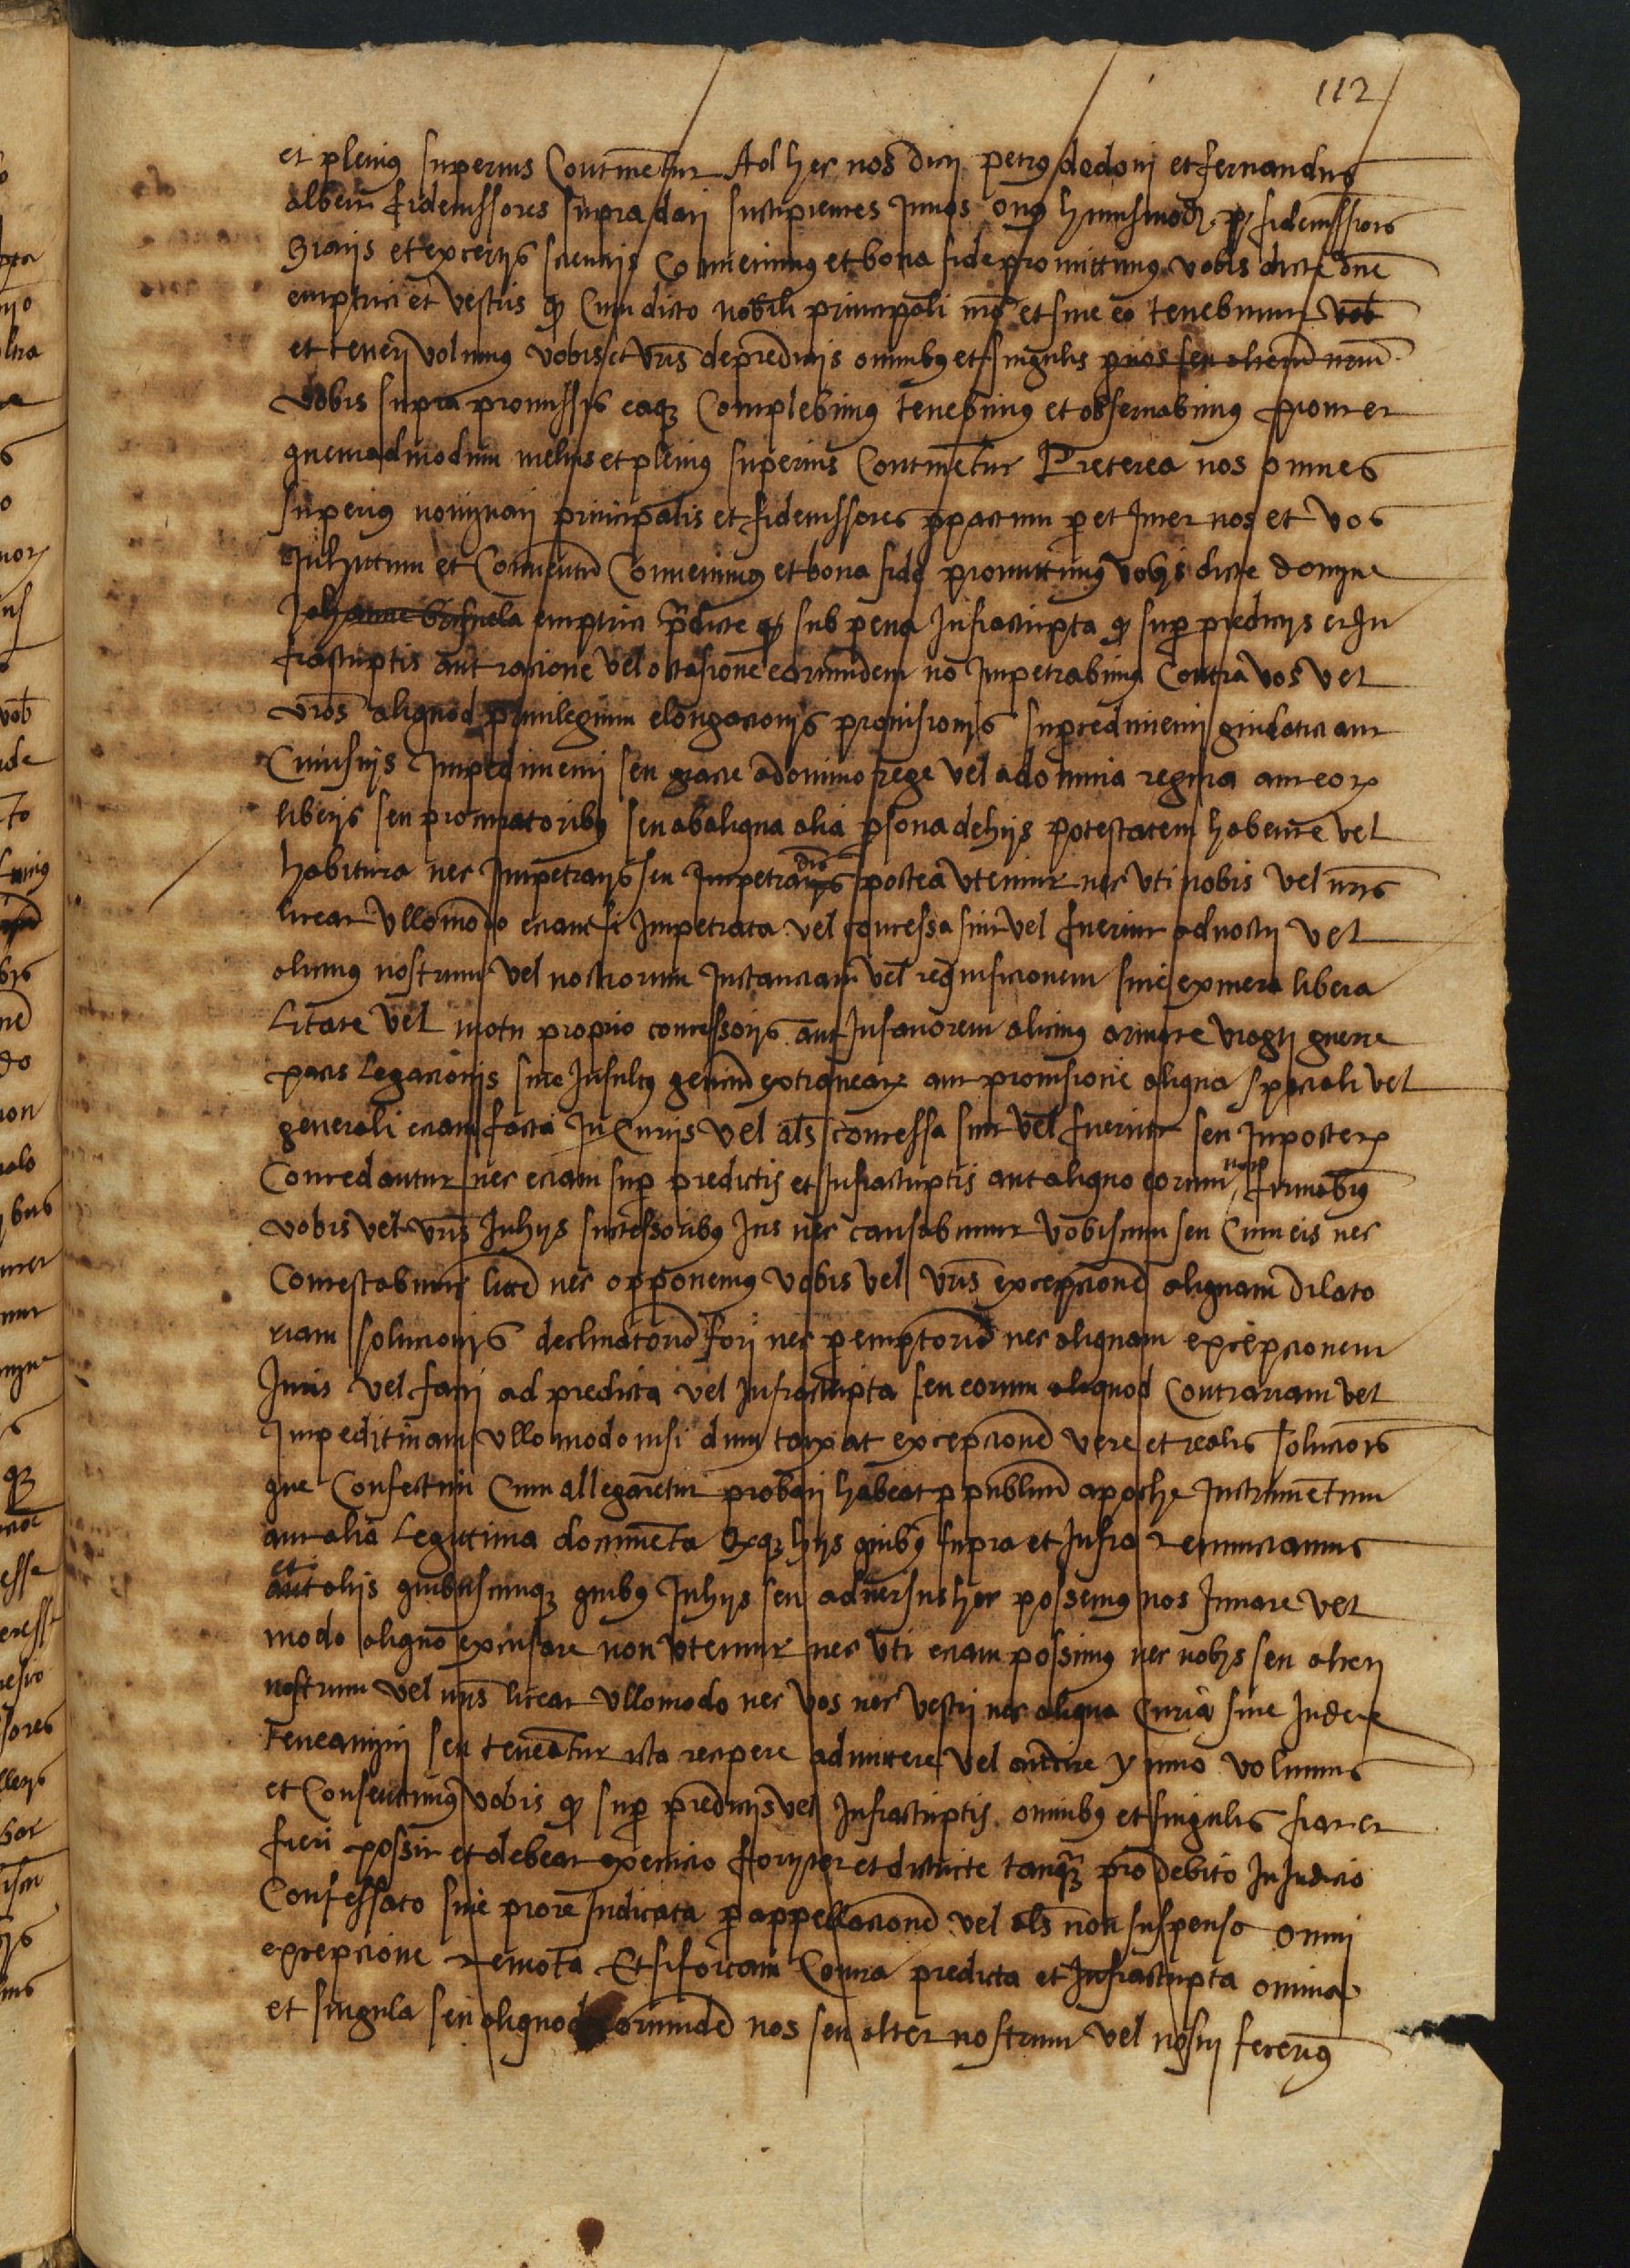 112
et pleniꝰ superius Contine͂tur Ad hec nos dicti petrꝰ dedoni et fernandus
alberti fideiussores supradicti suscipientes Jn nos onꝰ huiusmodi fideiussionis
Gratis et ex certis scientijs Conuenimꝰ et bona fide promittimꝰ vobis dicte dn̄e
emptrici et vestris ꝙ Cum dicto nobili principali nr̄o et sine eo tenebimur vob̄
et teneri volumus vobis et vr̄is de predictis omnibꝰ et singulis
vobis supra promissis eaqꝫ Complebimꝰ tenebimꝰ et obseruabimꝰ prout et
quemadmodum melius et pleniꝰ superius Contine͂tur Preterea nos omnes
superiꝰ nominati principalis et fideiussores ꝑ pactum ꝑ et Jnter nos et vos
Jnhitum et Conuentū Conuenimꝰ et bona fide promittimꝰ vobis dicte domine
Johanne emptrici p̄dicte ꝙ sub pena Jnfrascripta ꝙ suꝑ predictis et Jn
frascriptis aut racione vel occasione eorumdem nō Jmpetrabimꝰ Contra vos vel
vr̄os aliquod priuilegium elongacionis prouisionis supersedimenti guidatici aut
Cuiusuis Jmpedimenti seu gracie a domino rege vel a domina regina aut eoꝝ
liberis seu procuratoribꝰ seu ab aliqua alia ꝑsona de hijs potestatem habente vel
habitura nec Jmpetratis seu Jmpetrandis postea vtemur nec vti nobis vel nr̄is
liceat vllomodo eciam si Jmpetrata vel concessa sint vel fuerint ad nostri vel
alicuius nostrum vel nostrorum Jnstanciam vel requisicionem siue ex mera libera
litate vel motu proprio concessoris aut Jn fauorem alicuiꝰ armate viagij guerre
pacis legacionis siue Jnsultꝰ gencium extranearꝝ aut prouisione aliqua speciali vel
generali eciam facta Jn Curijs vel als̄ concessa sint vel fuerint seu Jn posterꝝ
Concedantur nec eciam suꝑ predictis et Jnfrascriptis aut aliquo eorum non firmabimꝰ
vobis vel vr̄is Jn hijs successoribꝰ Jus nec causabimur vobiscum seu Cum eis nec
Contestabimur litē nec opponemꝰ vobis vel vr̄is excepcionē aliquam dilato
riam solucionis declinatoriā fori nec ꝑemptoriā nec aliquam excepcionem
Juris vel facti ad predicta vel Jnfrascripta seu eorum aliquod Contrariam vel
Jmpeditiuam vllomodo nisi dum taxat excepcionē vere et realis solucionis
que Confestim Cum allegaretur probari habeat ꝑ publicū apoche Jnstrumentum
aut alia legittima documenta Exqꝫ hijs quibꝰ supra et Jnfra renunciamus
et alijs quibuscumqꝫ quibꝰ Jn hijs seu aduersus hec possemꝰ nos Juuare vel
modo aliquo excusare non vtemur nec vti eciam possimꝰ nec nobis seu alteri
nostrum vel nr̄is liceat vllomodo nec vos nec vestri nec aliqua Curia siue Judex
teneamini seu teneātur ista recipere admittere vel audire ymmo volumus
et Consentimꝰ vobis ꝙ suꝑ predictis vel Jnfrascriptis omnibꝰ et singulis fiat et
fieri possit et debeat execucio fortiter et districte tanqꝫ pro debito Jn Judicio
Confessato siue pro re Judicata ꝑ appellacionē vel als̄ non suspenso omni
excepcione remota Et si forcam Contra predicta et Jnfrascripta omnia
et singula seu aliquod eorumdē nos seu alter nostrum vel nostri fecerimꝰ